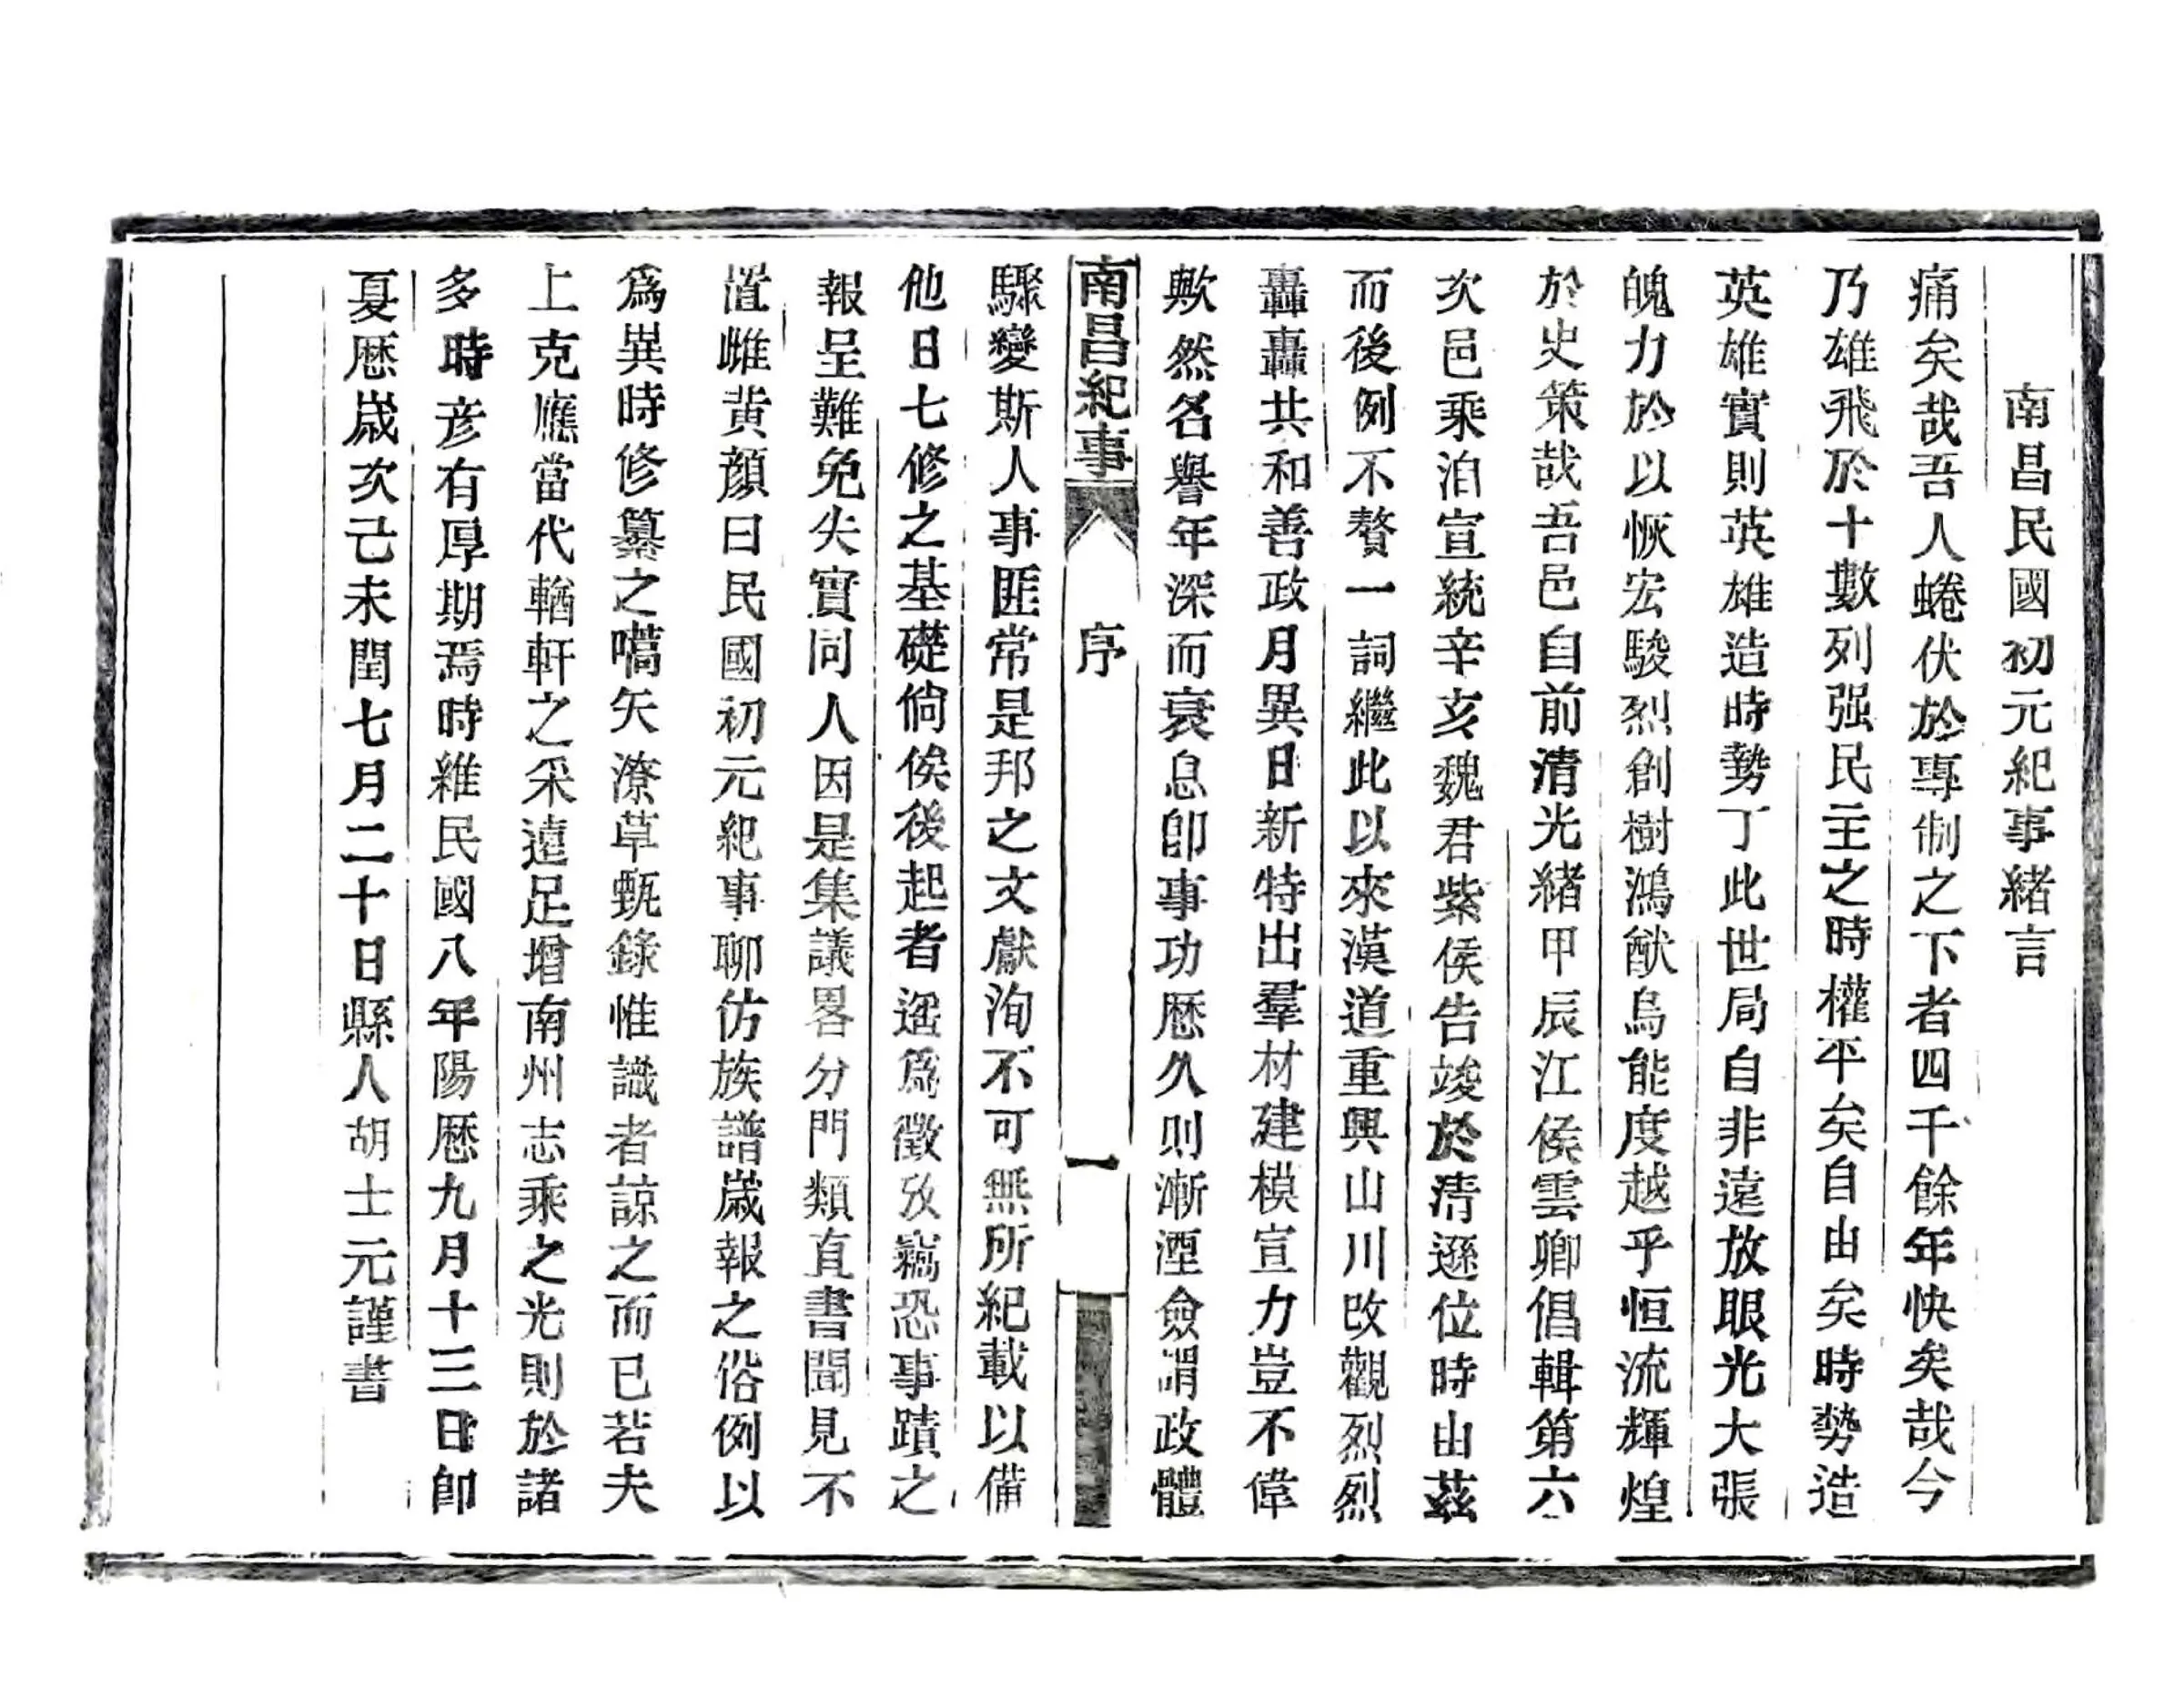 南昌民國初元紀事緒言
痛矣哉吾人蜷伏於專制之下者四千餘年快矣哉今
乃雄飛於十數列强民主之時權平矣自由矣時勢造
英雄實則英雄造時勢丁此世局自非遠放眼光大張
魄力於以恢宏駿烈創樹鴻猷烏能度越乎恒流輝煌
於史策哉吾邑自前清光緒甲辰江侯雲卿倡輯第六
次邑乘洎宣統辛亥魏君紫侯告竣於清遜位時由茲
而後例不贅一詞繼此以來漢道重興山川改觀烈烈
轟轟共和善政月異日新特出羣材建模宣力豈不偉
歟然名譽年深而衰息卽事功歷久則漸湮僉謂政體
南昌紀事
序
一
驟變斯人事匪常是邦之文獻洵不可無所紀載以備
他日七修之基礎倘俟後起者遥爲徵攷竊恐事蹟之
報呈難免失實同人因是集議畧分門類直書聞見不
置雌黃顏曰民國初元紀事聊仿族譜歲報之俗例以
爲異時修纂之嚆矢潦草甄錄惟識者諒之而已若夫
上克應當代輶軒之采遠足增南州志乘之光則於諸
多時彥有厚期焉時維民國八年陽歷九月十三日卽
夏歷歲次己未閏七月二十日縣人胡士元謹書